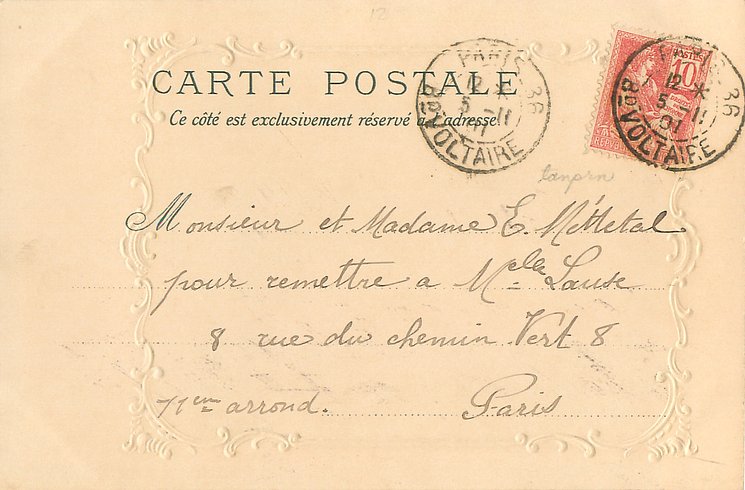 CARTE POSTALE
Ce côté est exclusivement réservé à l'adresse
PARIS - 36
12 *
5 - 11
01
Bd VOLTAIRE
POSTES
10
PARIS - 36
12 *
5 - 11
01
Bd VOLTAIRE
Monsieur et Madame E. Méttetal
pour remettre a Melle Lause
8 rue du chemin Vert 8
11em arrond. Paris